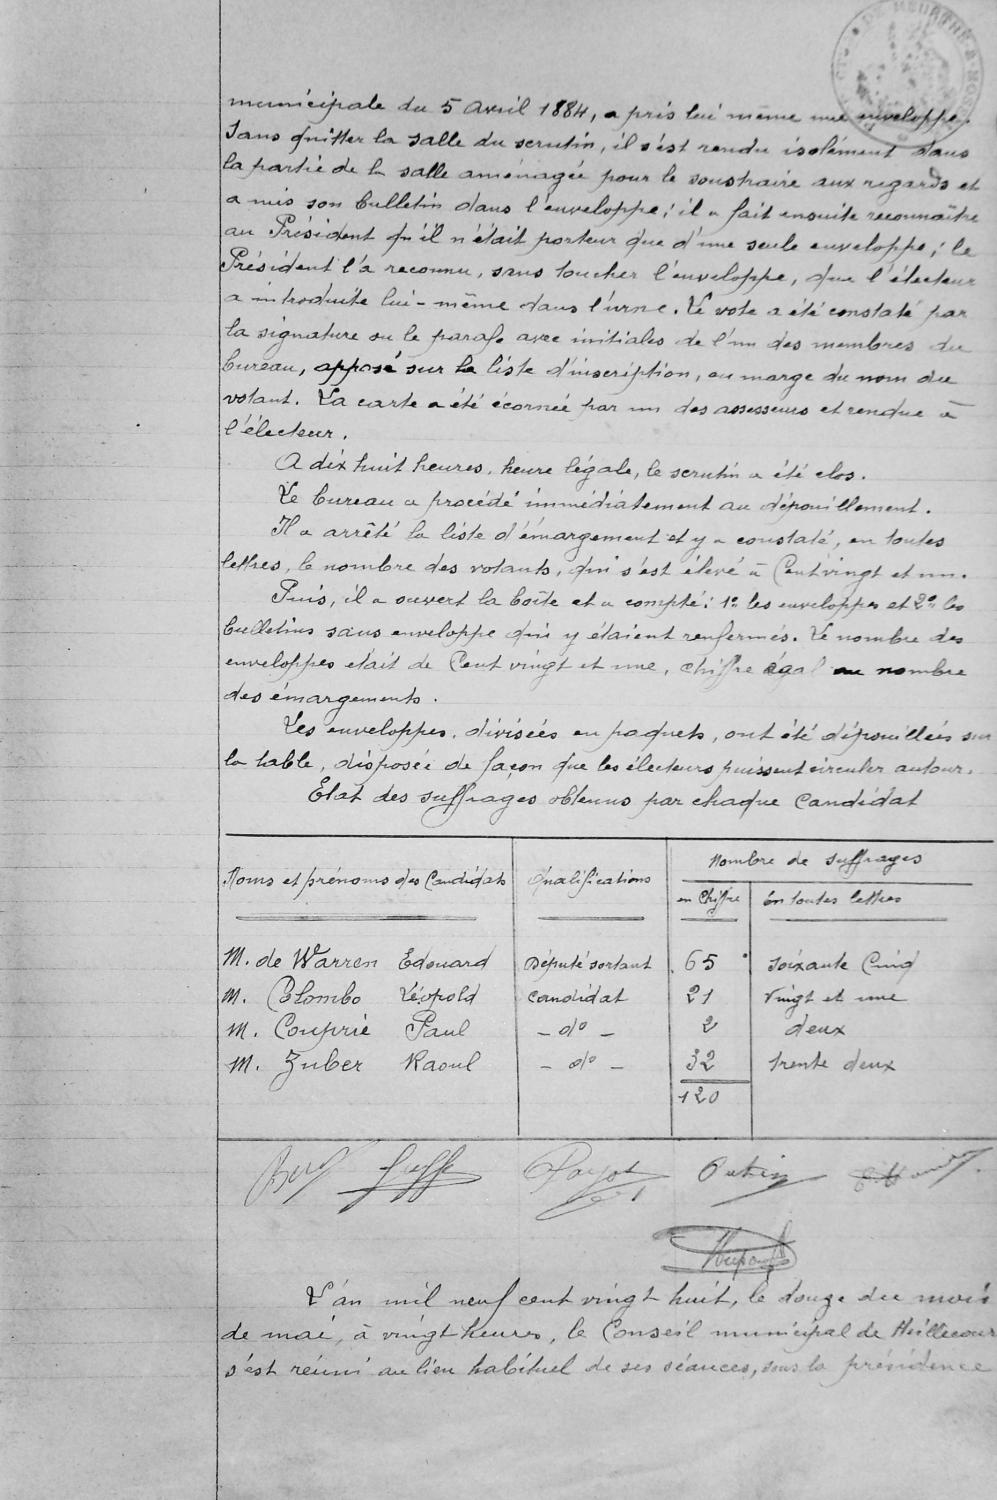 municipale du 5 avril 1884, a pris lui même une enveloppe.
Sans quitter la salle du scrutin, il s'est rendu isolément dans
la partie de la salle aménagée pour le soustraire aux regards et
a mis son bulletin dans l'enveloppe; il a fait ensuite reconnaître
au Président qu'il n'était porteur que d'une seule enveloppe; le
Président l'a reconnu, sans toucher l'enveloppe, que l'électeur
a introduite lui-même dans l'urne. Le vote a été constaté par
la signature ou le parafe avec initiales de l'un des membres du
bureau, apposé sur la liste d'inscription, en marge du nom du
votant. La carte a été écornée par un des assesseurs et rendue à
l'électeur.
A dix huit heures, heure légale, le scrutin a été clos.
Le bureau a procédé immédiatement au dépouillement.
Il a arrêté la liste d'émargement et y a constaté, en toutes
lettres, le nombre des votants, qui s'est élevé à Cent vingt et un.
Puis, il a ouvert la boîte et a compté: 1° les enveloppes et 2° les
bulletins sans enveloppe qui y étaient renfermés. Le nombre des
enveloppes etait de Cent vingt et une, chiffre égal au nombre
des émargements.
Les enveloppes, divisées en paquets, ont été dépouillées sur
la table, disposée de façon que les électeurs puissent circuler autour.
Etat des suffrages obtenus par chaque Candidat
Noms et prénoms des Candidats Qualifications Nombre de suffrages
en Chiffre En toutes lettres
M. de Warren Edouard Député sortant 65 soixante Cinq
M. Colombo Léopold Candidat 21 vingt et une
M. Couprié Paul - d° - 2 deux
M. Zuber Raoul - d° - 32 trente deux
120
L'an mil neuf cent vingt huit, le douze du mois
de mai, à vingt heures, le Conseil municipal de Heillecour
s'est réuni au lieu habituel de ses séances, sous la présidence